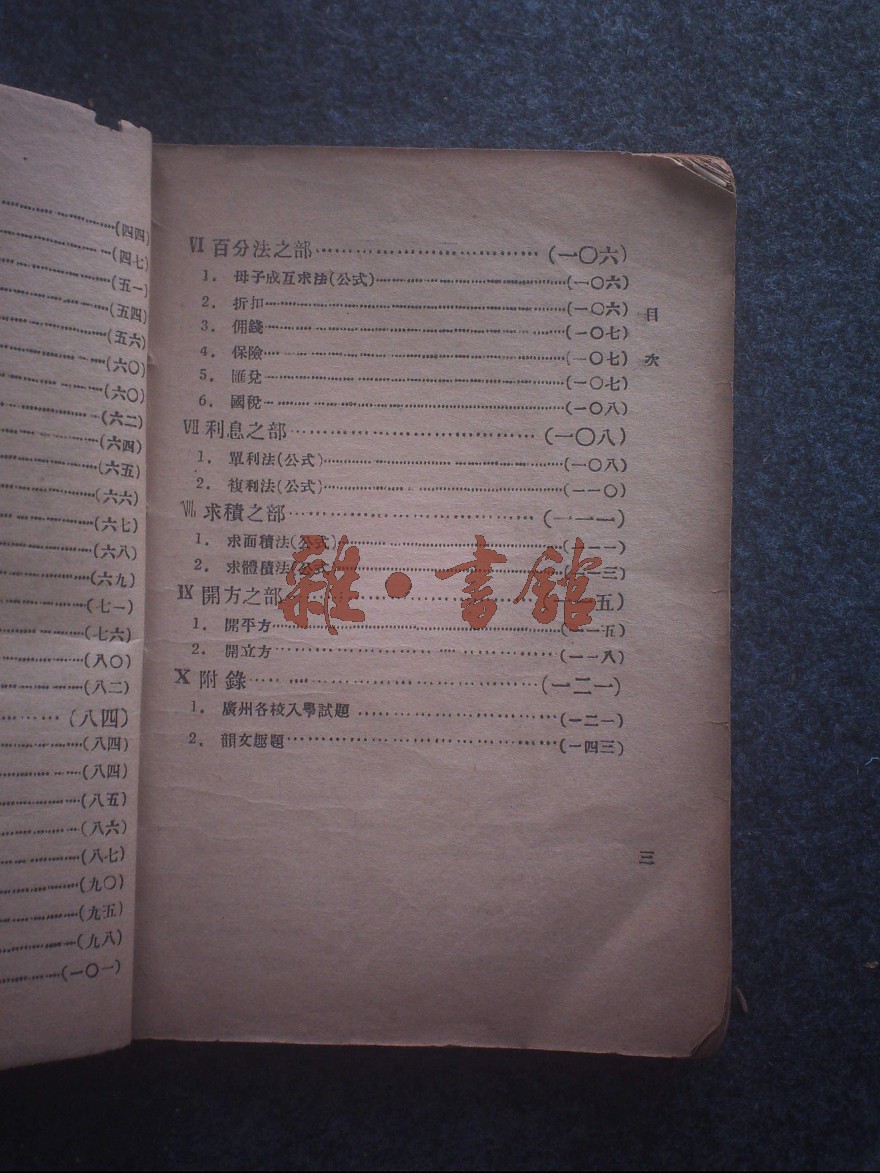 (四四)
(四七)
(五一)
(五四)
(五六)
(六〇)
(六〇)
(六二)
(六四)
(六五)
(六六)
(六七)
(六八)
(六九)
(七一)
(七六)
(八〇)
(八二)
(八四)
(八四)
(八四)
(八五)
(八六)
(八七)
(九〇)
(九五)
(九八)
(一〇一)
Ⅵ 百分法之部……(一〇六)
1. 母子成互求法(公式)……(一〇六)
2. 折扣……(一〇六)
3. 佣錢……(一〇七)
4. 保險……(一〇七)
5. 匯兌……(一〇七)
6. 國稅……(一〇八)
Ⅶ 利息之部……(一〇八)
1. 單利法(公式)……(一〇八)
2. 複利法(公式)……(一一〇)
Ⅷ 求積之部……(一一一)
1. 求面積法(公式)……(一一一)
2. 求體積法(公式)……(一一三)
Ⅸ 開方之部……(一一五)
1. 開平方……(一一五)
2. 開立方……(一一八)
Ⅹ 附錄……(一二一)
1. 廣州各校入學試題……(一二一)
2. 韻文趣題……(一四三)
目次
三
雜·書館